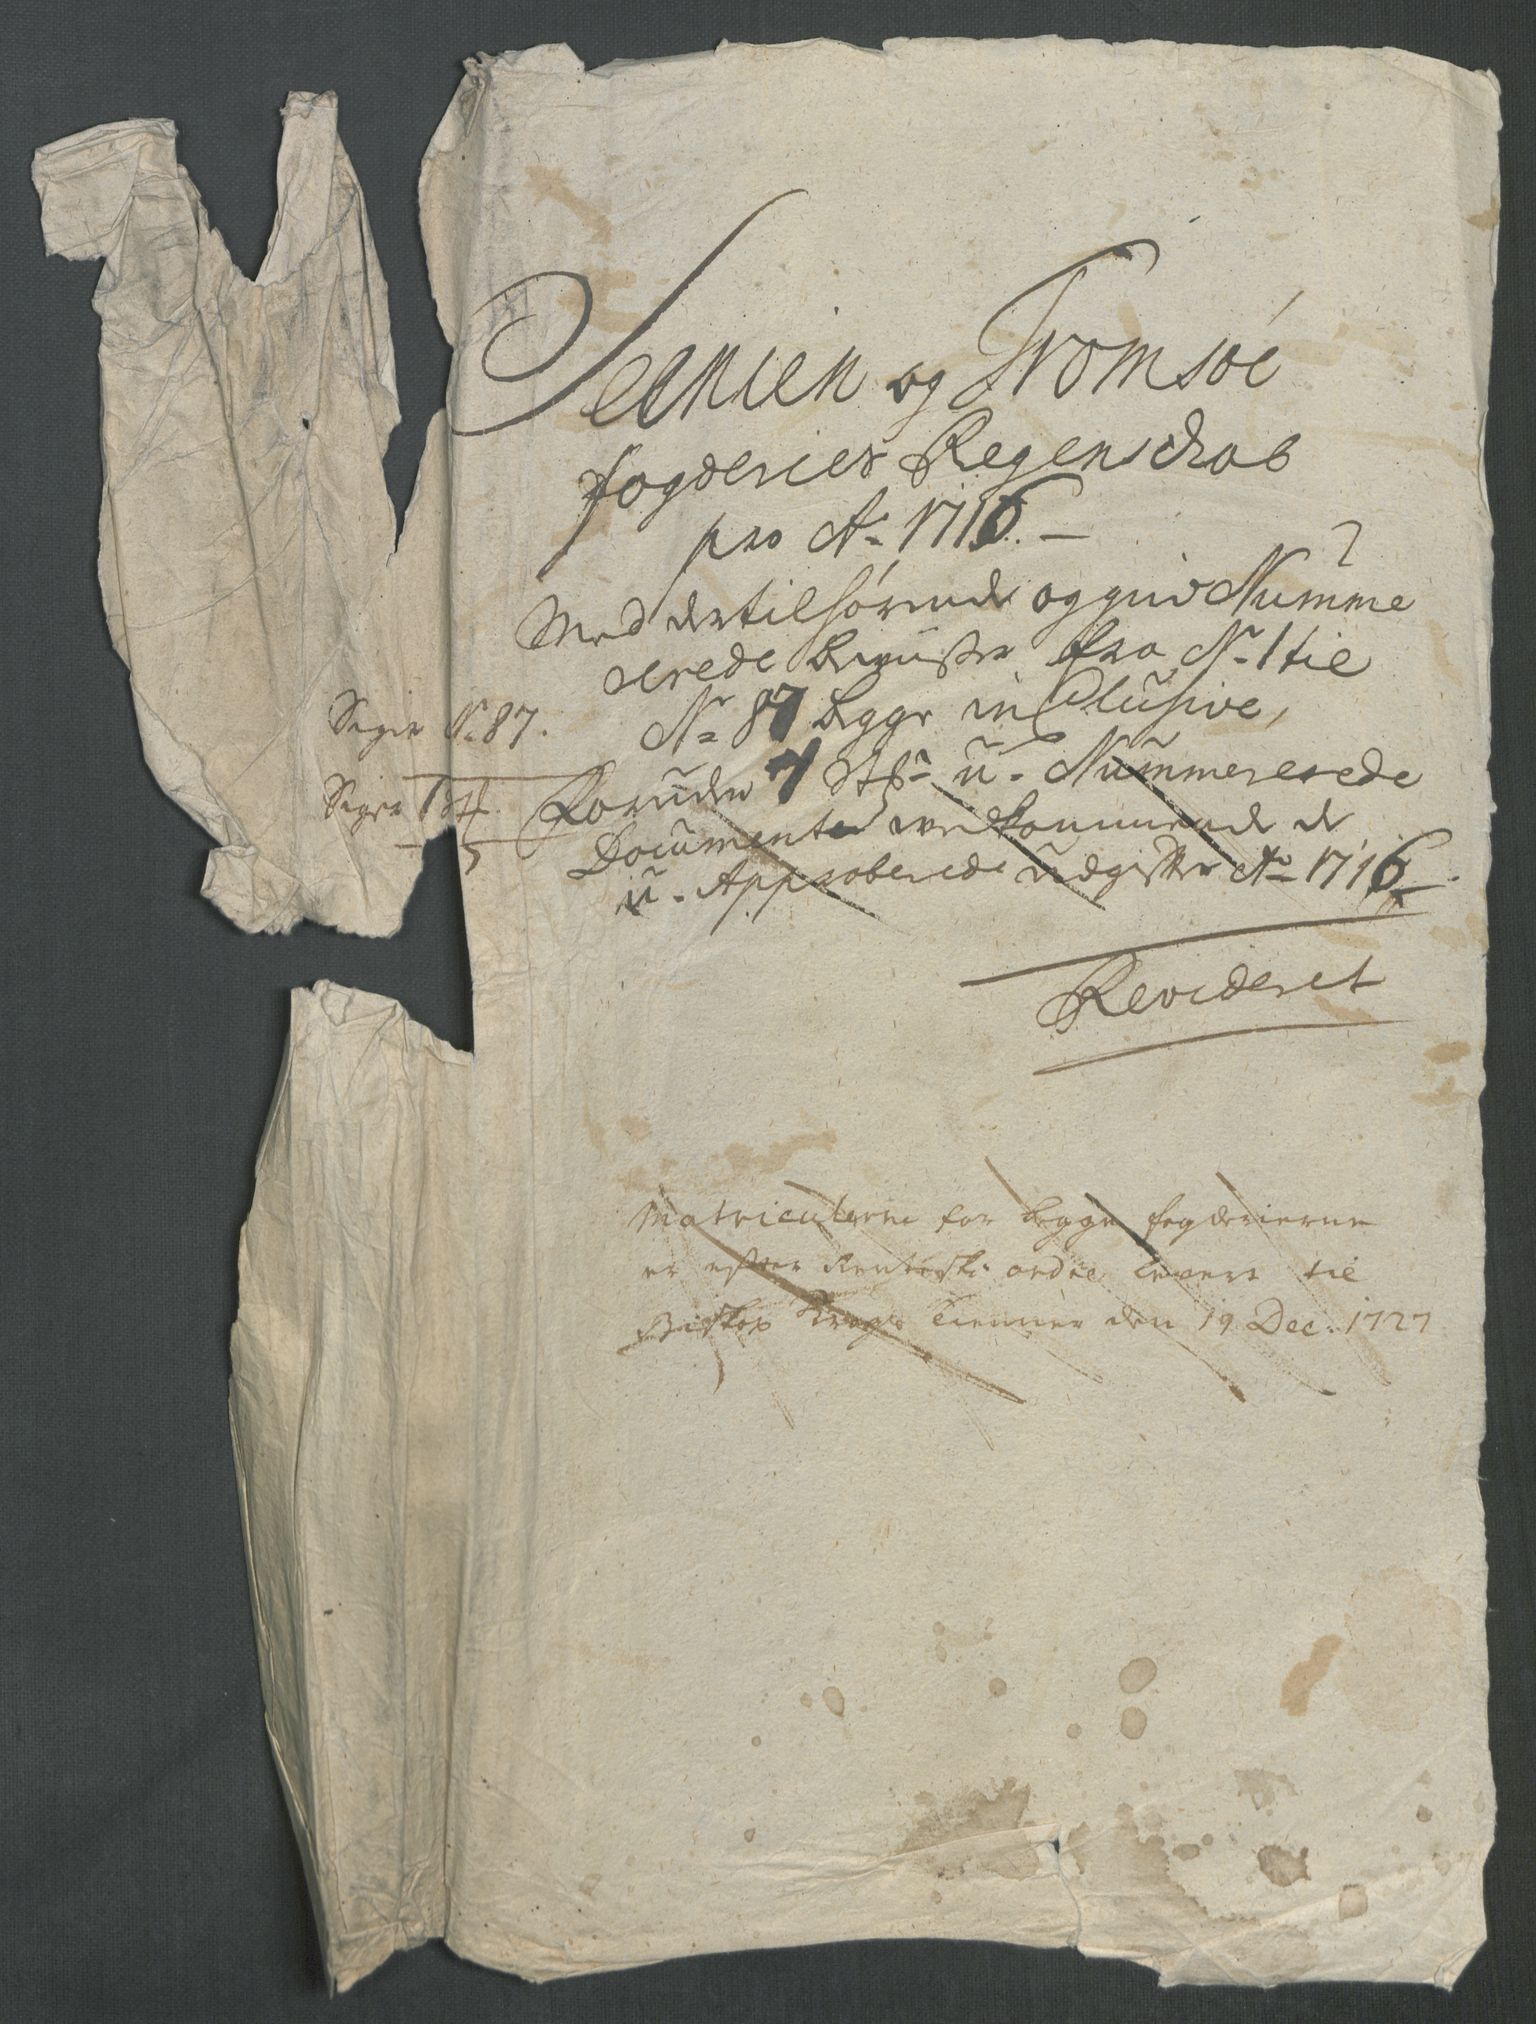 Sennien og Tromsöe
fogderies Regenschab
pro Ao 1716.
Med dertilhörende og qviv Numme
rerede beviister fra No 1 til
No 87 begge inclusive,
Siger No 87.
Foruden 7 St: u-Nummererede
Siger
Documenter vedkommende de
u-Approberede udgifter Ao 1716
Revideret
Matriculerne for begge fogderierne
er efter Rentesk: ordre levert til
Biskop Krogs tienner den 19 Dec: 1727